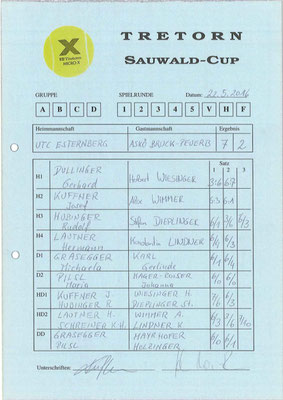 TRETORN
SAUWALD-CUP
X
GRUPPE SPIELRUNDE Datum: 22.5.2016
A B C D 1 2 3 4 5 V H F
Heimmannschaft Gastmannschaft Ergebnis
UTC ESTERNBERG ASKÖ BRUCK-PEUERB 7 2
Satz
1 2 3
H1 DULLINGER Gerhard Herbert WIESINGER 3:6 6:7
H2 KUFFNER Josef Alex WIMMER 6:3 6:1
H3 HUBINGER Rudolf Stefan DIEPLINGER 6/1 3/6 6/3
H4 LAUTNER Hermann Konstantin LINDNER 6/1 6/3
D1 GRASEGGER Michaela KARL Gerlinde 6/1 6/1
D2 PILSL Maria HAGER-POISER Johanna 6/0 6/0
HD1 KUFFNER J. WIESINGER H.
HUBINGER R. DIEPLINGER St.
HD2 LAUTNER H. WIMMER A. 6/3 3/6
SCHREINER K.H. LINDNER K.
DD GRASEGGER MAYRHOFER 6/0 6/1
PILSL HOLZINGER
Unterschriften: